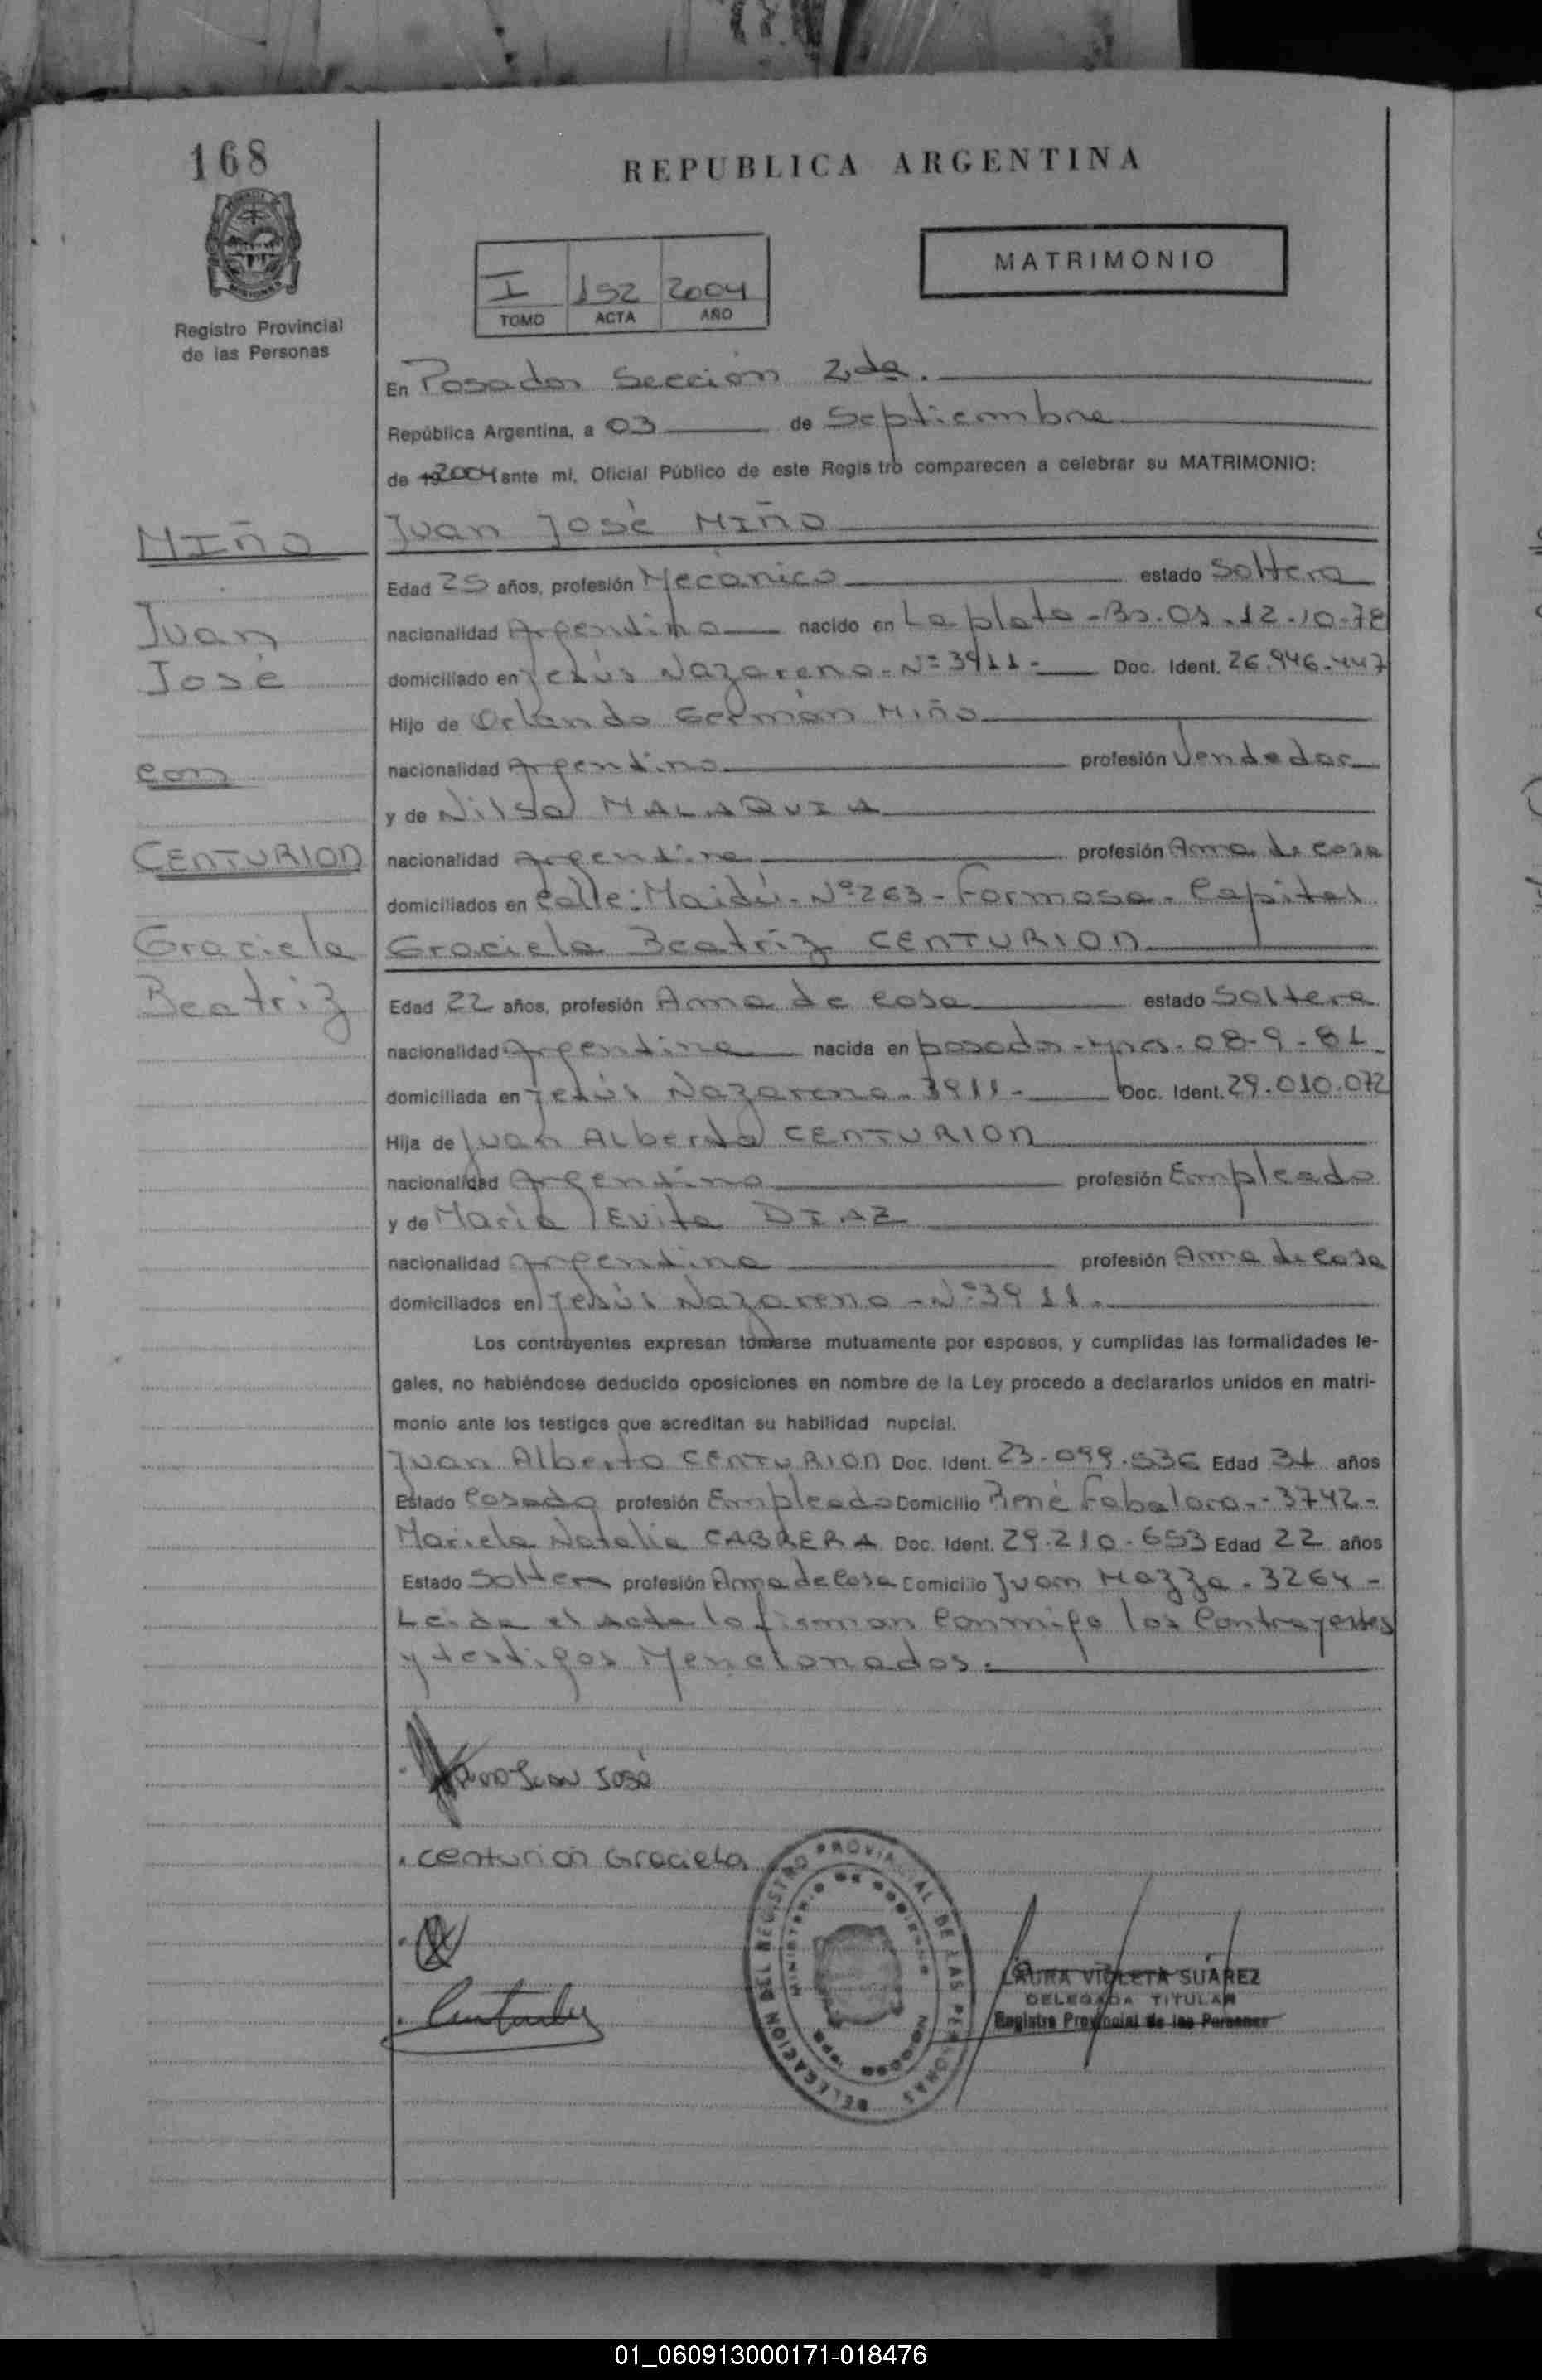 168
REPUBLICA ARGENTINA
MATRIMONIO
I 152 2004
TOMO ACTA AÑO
Registro Provincial
de las Personas
En Posadas Sección 2da.
República Argentina, a 03 de Septiembre
de 19 2004 ante mi, Oficial Público de este Registro comparecen a celebrar su MATRIMONIO:
MIÑO
Juan José MIÑO
Edad 25 años, profesión Mecánico estado Soltero
Juan
nacionalidad Argentina nacido en La plata - Bs. As. 12-10-78
José
domiciliado en Jesús Nazareno - Nº 3911 - Doc. Ident. 26.946.447
Hijo de Orlando Germán Miño
con
nacionalidad Argentino profesión Vendedor
y de Nilsa MALAQUIA
CENTURION
nacionalidad Argentina profesión Ama de casa
domiciliados en calle: Maidú - Nº 263 - Formosa - Capital
Graciela
Graciela Beatriz CENTURION
Beatriz
Edad 22 años, profesión Ama de casa estado Soltera
nacionalidad Argentina nacida en posadas - Mnes. 08-9-81
domiciliada en Jesús Nazareno - 3911 - Doc. Ident. 29.010.072
Hija de Juan Alberto CENTURION
nacionalidad Argentino profesión Empleado
y de María Evita DIAZ
nacionalidad Argentina profesión Ama de casa
domiciliados en Jesús Nazareno - Nº 3911.
Los contrayentes expresan tomarse mutuamente por esposos, y cumplidas las formalidades le-
gales, no habiéndose deducido oposiciones en nombre de la Ley procedo a declararlos unidos en matri-
monio ante los testigos que acreditan su habilidad nupcial.
Juan Alberto CENTURION Doc. Ident. 23.099.536 Edad 31 años
Estado Casado profesión Empleado Domicilio René Fabaloro - 3742 -
Mariela Natalia CABRERA Doc. Ident. 29.210.653 Edad 22 años
Estado Soltera profesión Ama de Casa Domicilio Juan Mazza - 3264 -
Leída el acta la firman conmigo los Contrayentes
y testigos Mencionados.
Miño Juan José
Centurión Graciela
DELEGACION DEL REGISTRO PROVINCIAL DE LAS PERSONAS
MINISTERIO DE GOBIERNO
LAURA VIOLETA SUAREZ
DELEGADA TITULAR
Registro Provincial de las Personas
01_060913000171-018476